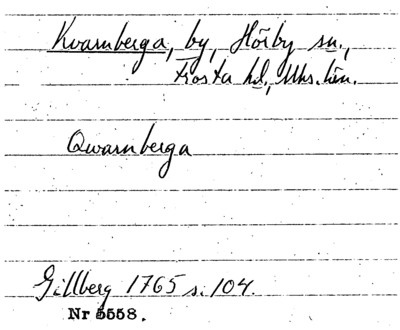 Kvarnberga, by, Hörby sn.,
Frosta hd, Mhs. län.
Qwarnberga
Gillberg 1765 s. 104.
Nr 5558.